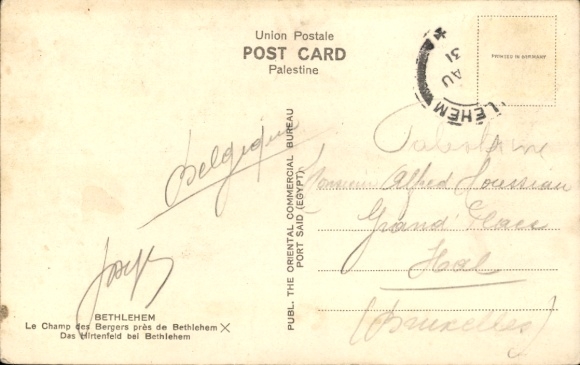 Union Postale
POST CARD
Palestine
PRINTED IN GERMANY
LEHEM
AU
31
Palestine
Belgique
Monsieur Alfred
Grand' Place
Hal
(Bruxelles)
Joseph
PUBL. THE ORIENTAL COMMERCIAL BUREAU
PORT SAID (EGYPT)
BETHLEHEM
Le Champ des Bergers près de Bethlehem X
Das Hirtenfeld bei Bethlehem